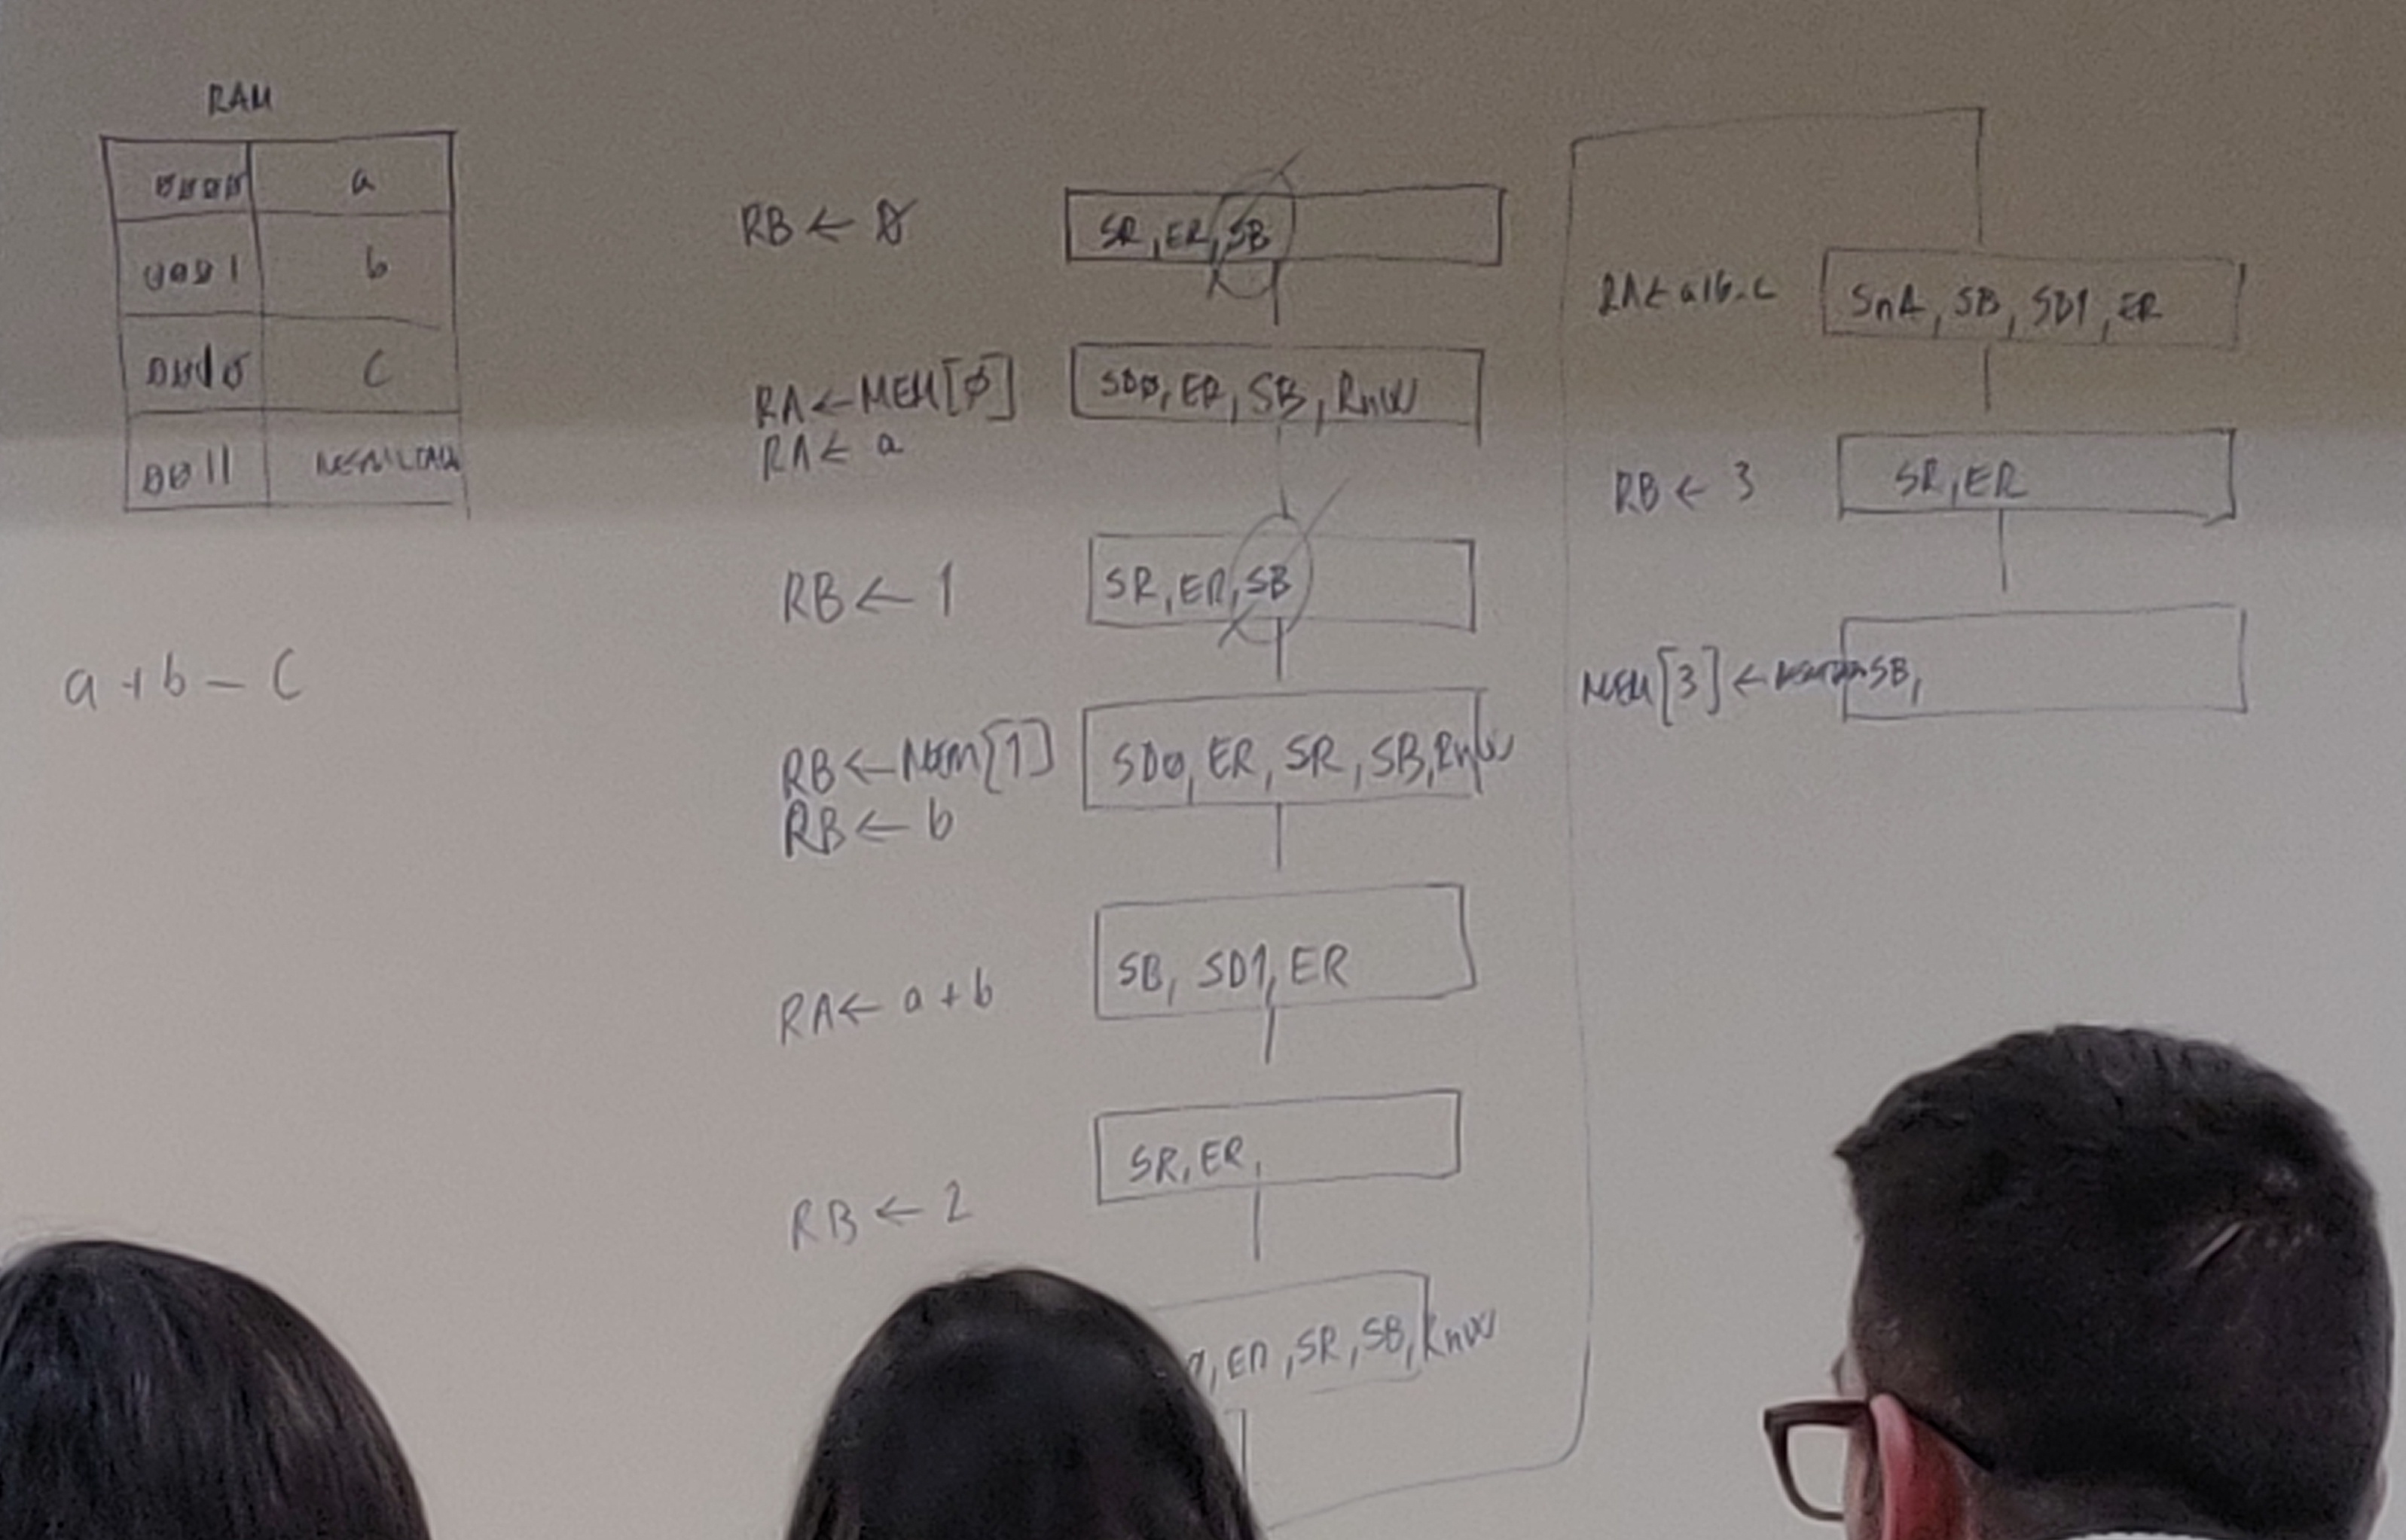 RAM
0000 a
0001 b
0010 c
0011
a + b - c
RB ← Ø
SR, ER, SB
RA ← MEM[Ø]
SDØ, ER, SB, RnW
RA ← a
RB ← 1
SR, ER, SB
RB ← MEM[1]
SDØ, ER, SR, SB, RnW
RB ← b
RA ← a + b
SB, SD1, ER
RB ← 2
SR, ER,
, ER, SR, SB, RnW
RA ← a+b-c
SnA, SB, SD1, ER
RB ← 3
SR, ER
MEM[3] ←
SB,